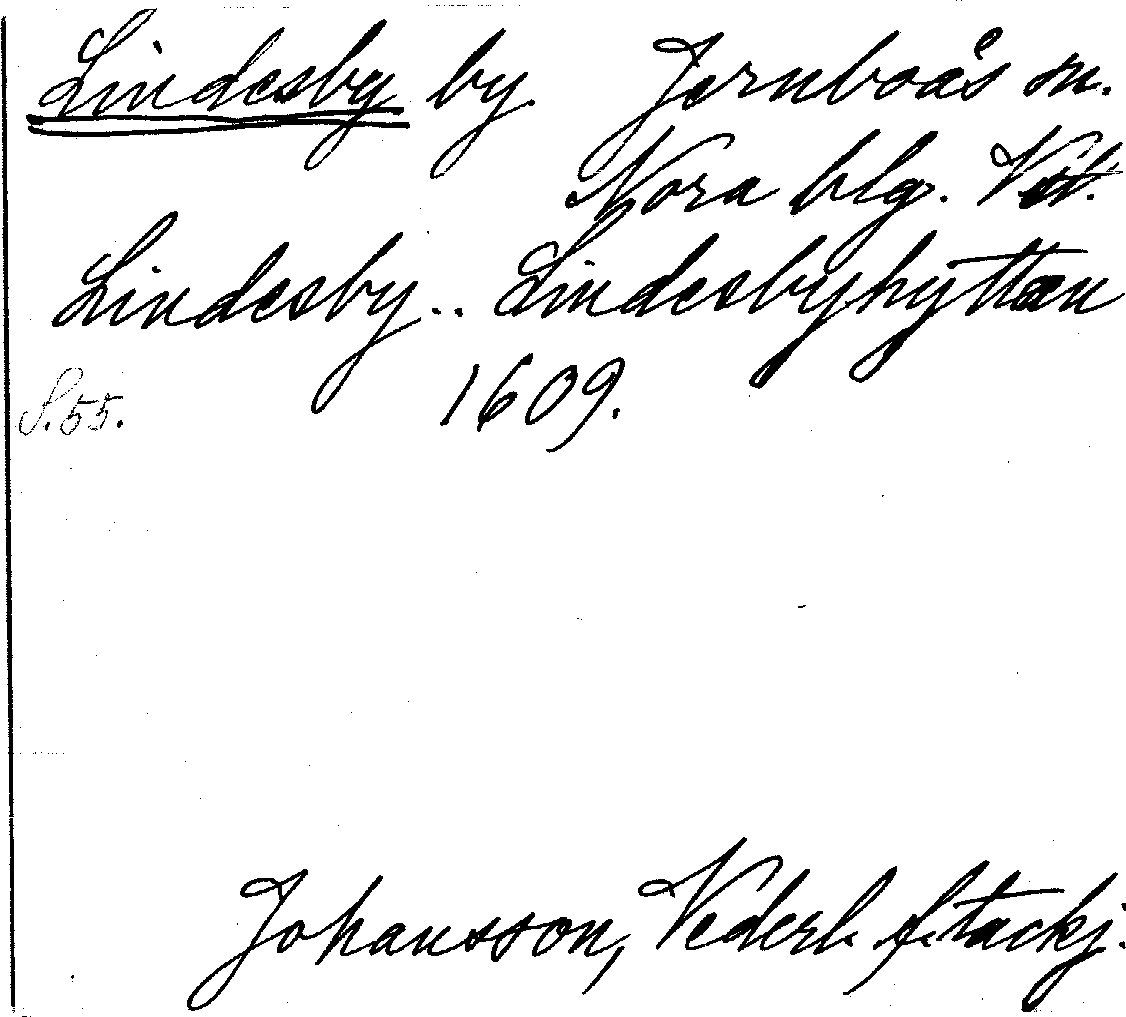 Lindesby by. Jernboås sn.
Nora blg. Vstl.
Lindesby.. Lindesbyhyttan
S. 55. 1609.
Johansson, Vederl. f. tackj.